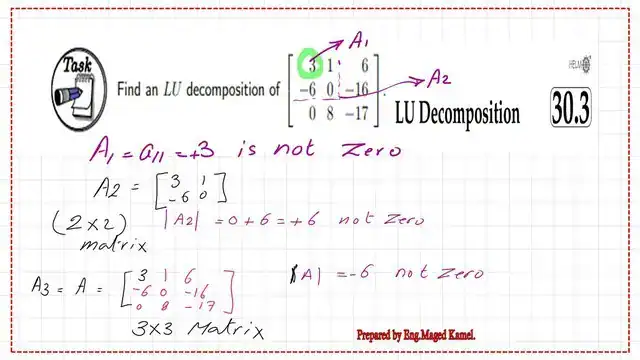 Task
Find an LU decomposition of
3 1 6
-6 0 -16
0 8 -17
A1
A2
HELM
LU Decomposition
30.3
A1 = a11 = +3 is not Zero
A2 = [3 1
-6 0]
(2x2) |A2| = 0+6 = +6 not Zero
matrix
A3 = A = [3 1 6
-6 0 -16
0 8 -17]
|A| = -6 not Zero
3x3 Matrix
Prepared by Eng.Maged Kamel.